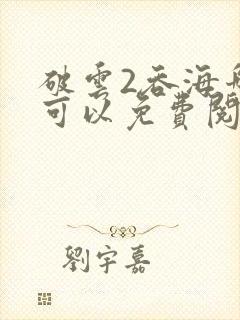 破雲2吞海
可以免費閱
劉宇嘉